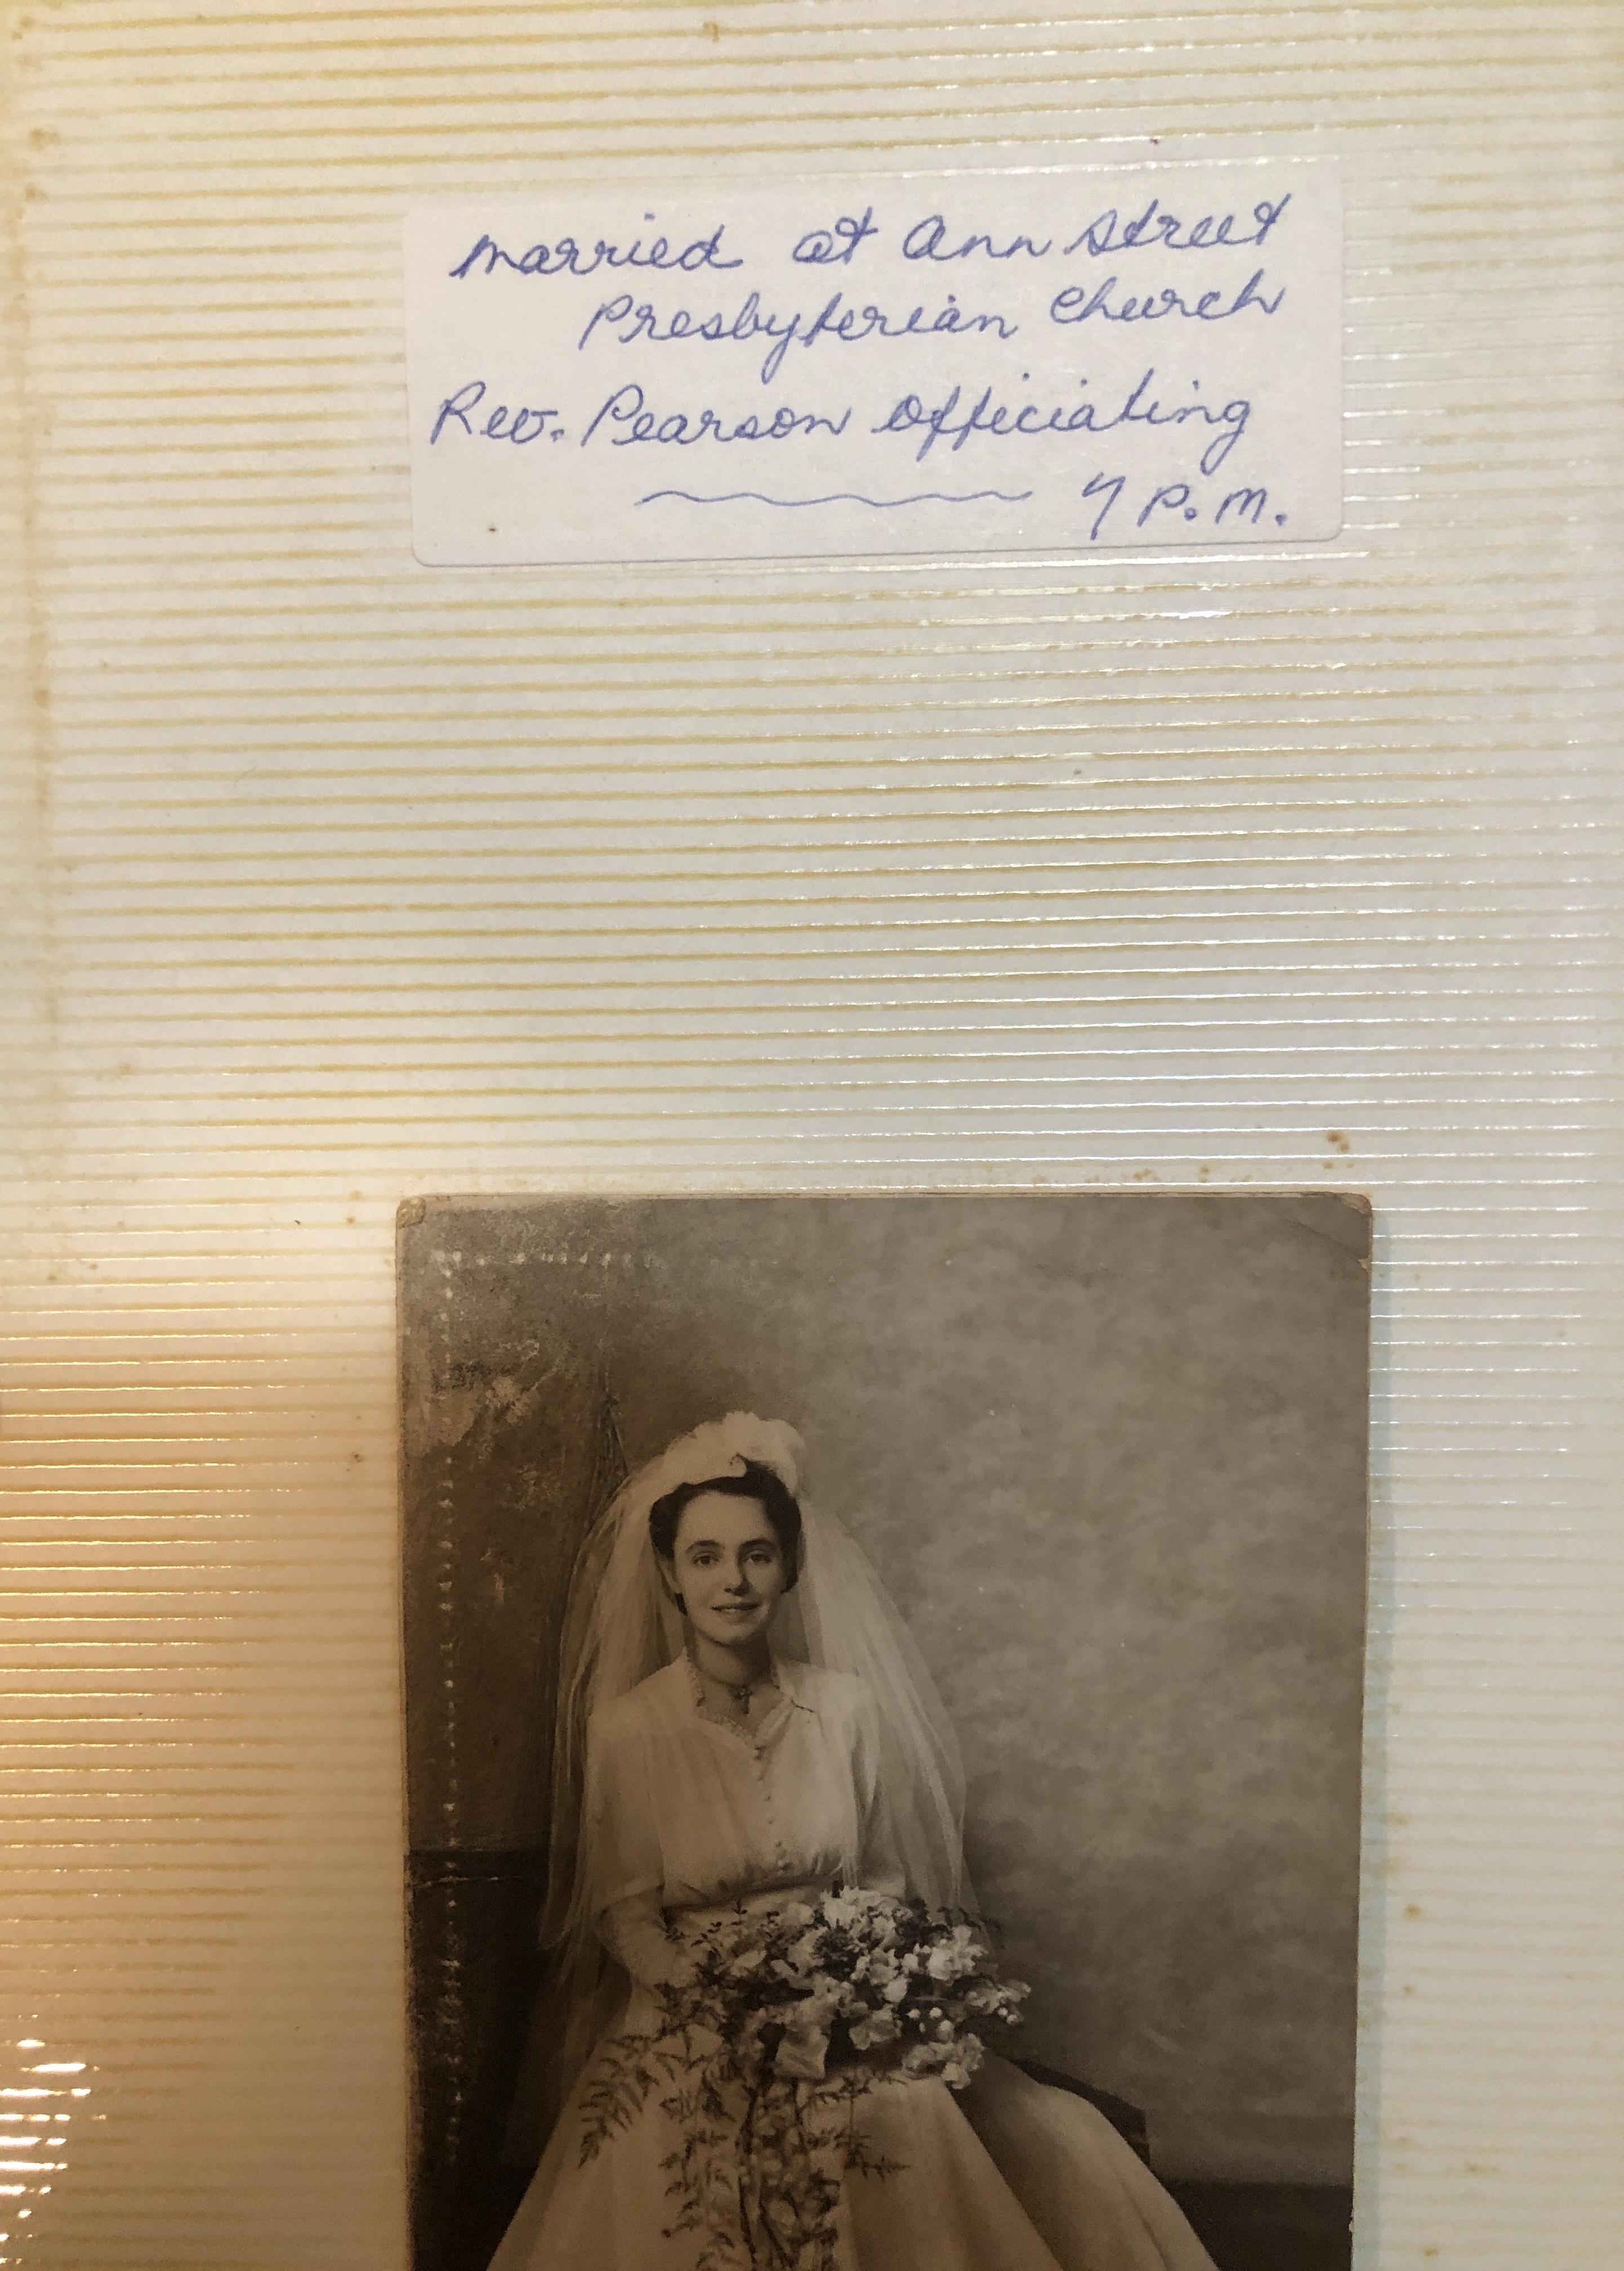 married at Ann Street
Presbyterian Church
Rev. Pearson officiating
7 P.M.